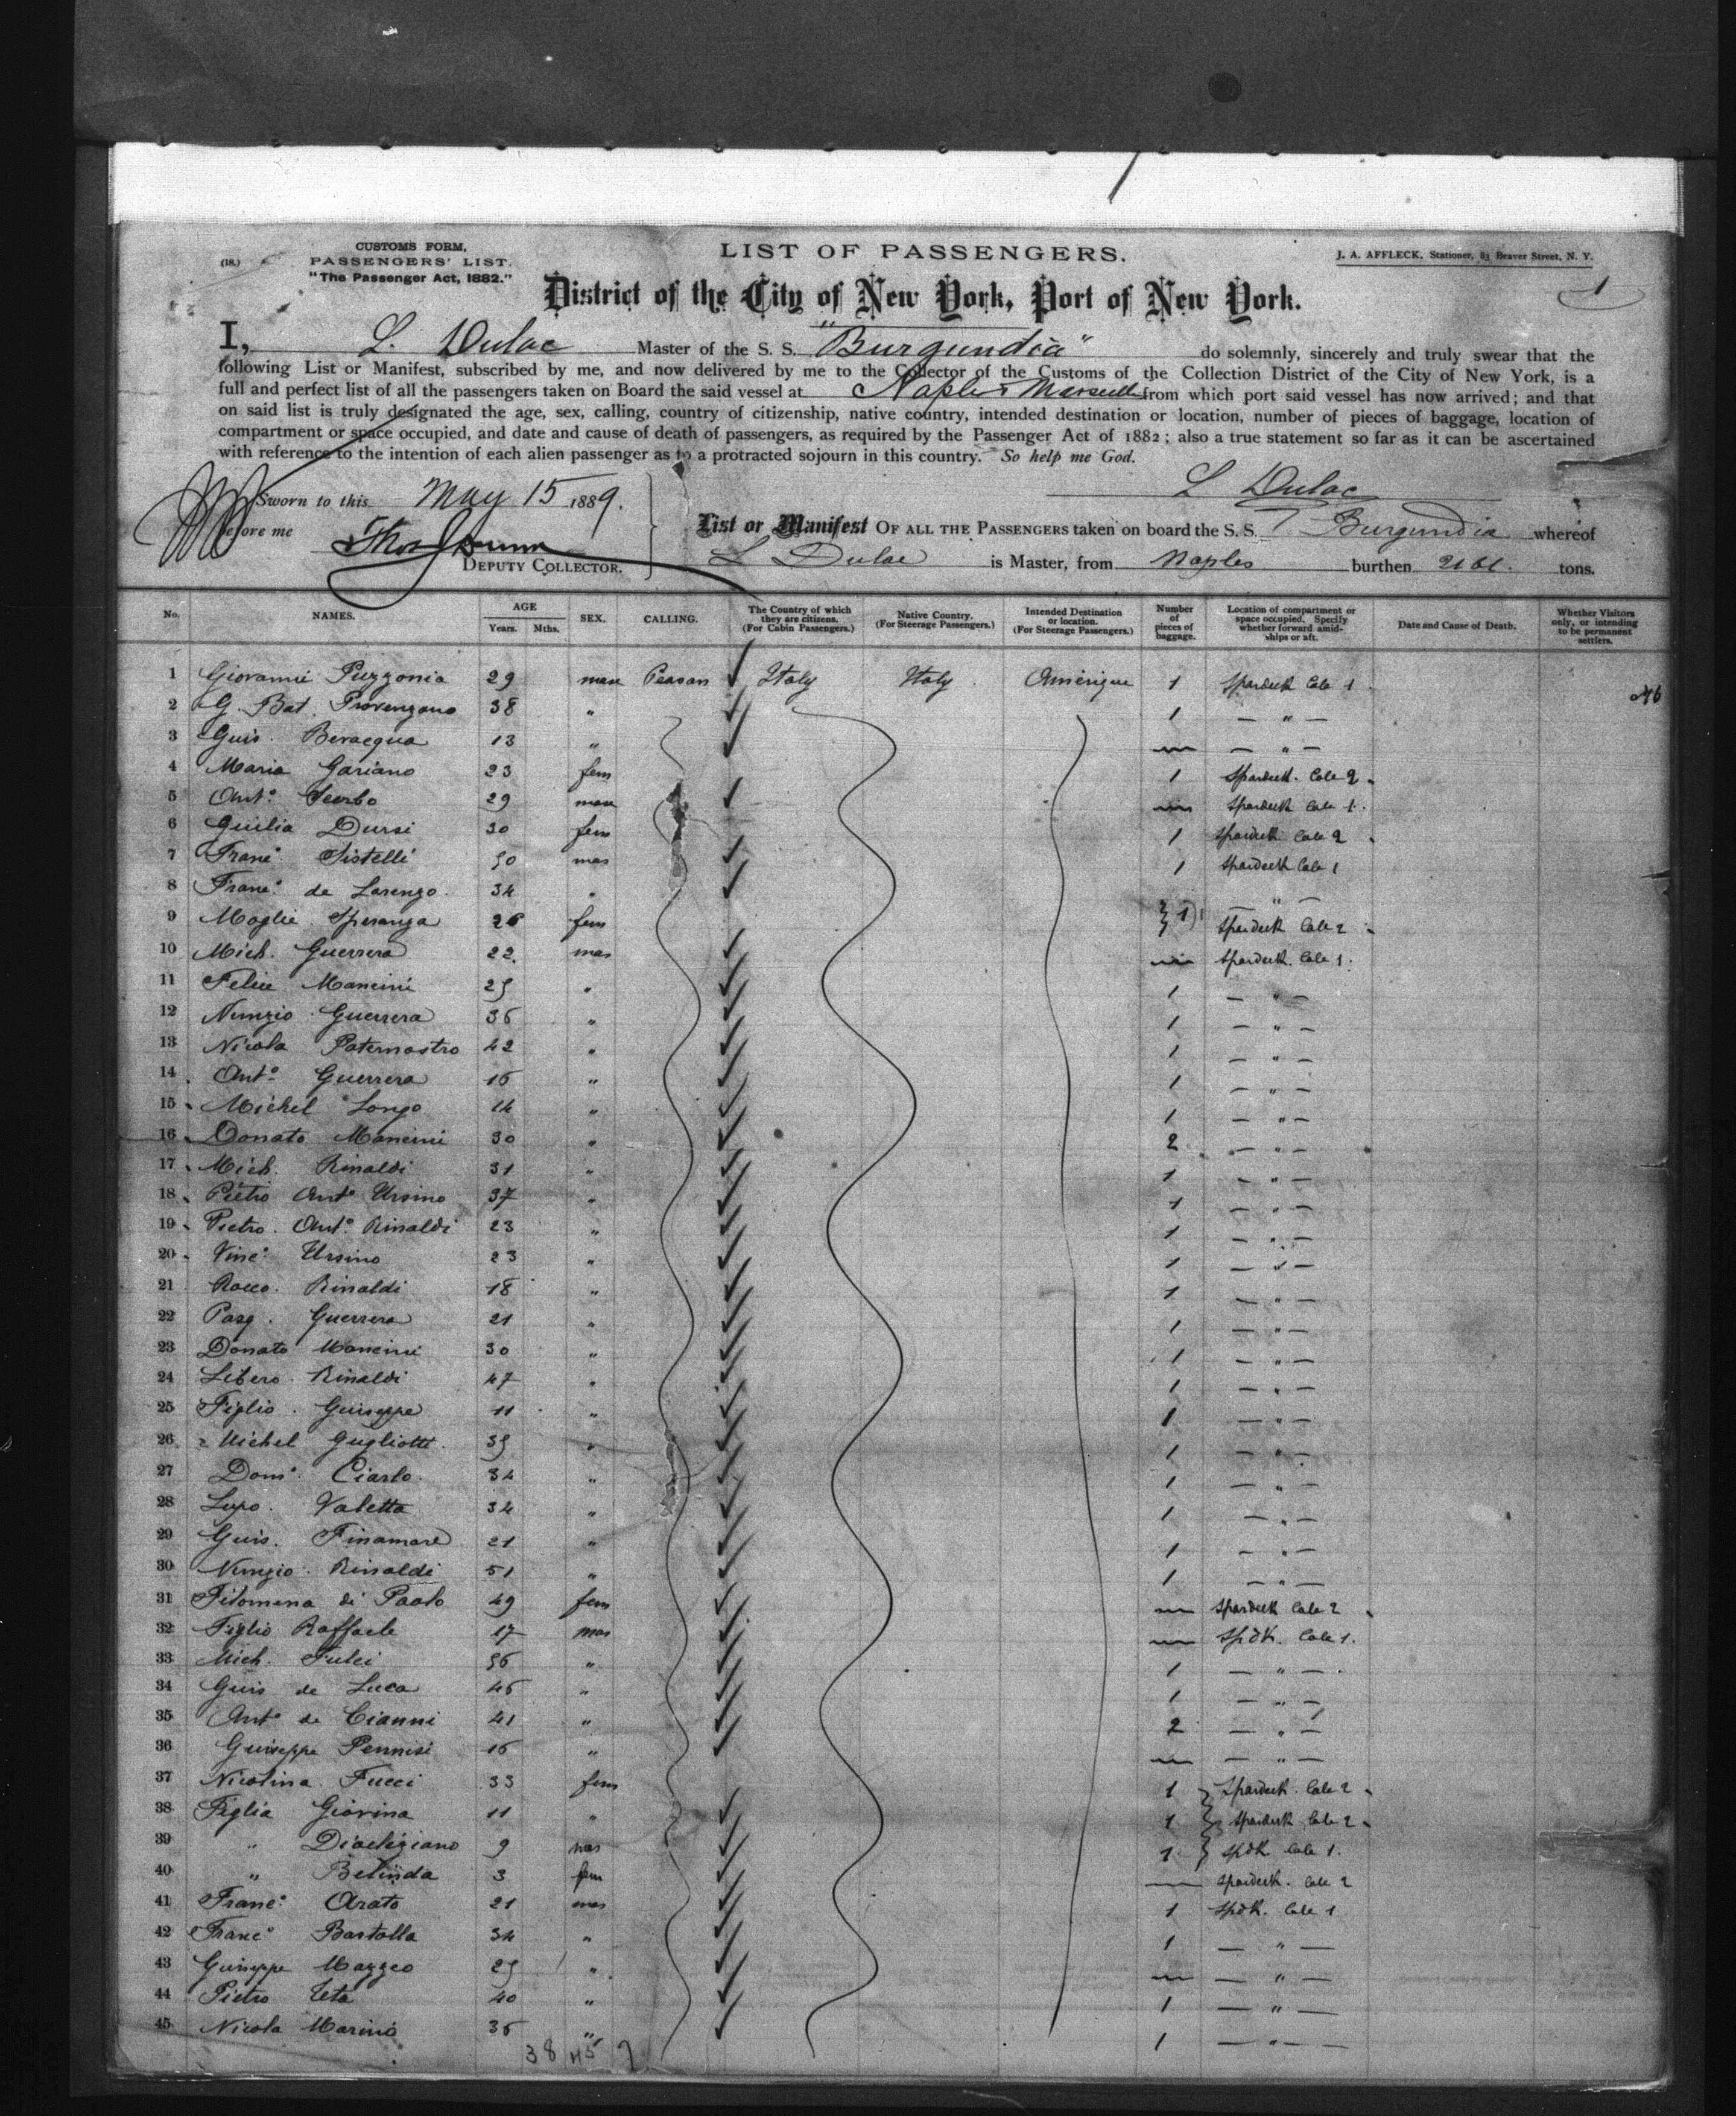 CUSTOMS FORM,
(18.) PASSENGERS' LIST.
"The Passenger Act, 1882."
LIST OF PASSENGERS.
J. A. AFFLECK, Stationer, 83 Beaver Street, N. Y.
1
District of the City of New York, Port of New York.
I, L. Dulac Master of the S. S. "Burgundia" do solemnly, sincerely and truly swear that the
following List or Manifest, subscribed by me, and now delivered by me to the Collector of the Customs of the Collection District of the City of New York, is a
full and perfect list of all the passengers taken on Board the said vessel at Naples from which port said vessel has now arrived; and that
on said list is truly designated the age, sex, calling, country of citizenship, native country, intended destination or location, number of pieces of baggage, location of
compartment or space occupied, and date and cause of death of passengers, as required by the Passenger Act of 1882; also a true statement so far as it can be ascertained
with reference to the intention of each alien passenger as to a protracted sojourn in this country. So help me God.
L Dulac
Sworn to this May 15 1889.
before me
DEPUTY COLLECTOR.
List or Manifest OF ALL THE PASSENGERS taken on board the S. S. Burgundia whereof
L Dulac is Master, from Naples burthen tons.
No. NAMES. AGE Years. Mths. SEX. CALLING. The Country of which they are citizens. (For Cabin Passengers.) Native Country. (For Steerage Passengers.) Intended Destination or location. (For Steerage Passengers.) Number of pieces of baggage. Location of compartment or space occupied. Specify whether forward amidships or aft. Date and Cause of Death. Whether Visitors only, or intending to be permanent settlers.
1 Giovanni Puzzonia 29 mas Peasan Italy Italy Amérique 1 Spardeck Cale 1
2 G. Bat. Provenzano 38 " 1 — " —
3 Guis. Bevacqua 13 " — — " —
4 Maria Gariano 23 fem 1 Spardeck. Cale 2
5 Ant° Scurbo 29 mas — Spardeck Cale 1.
6 Guilia Dursi 30 fem 1 Spardeck Cale 2
7 Franc° Siotelli 50 mas 1 Spardeck Cale 1
8 Franc° de Lorenzo 34 " — " —
9 Moglie Speranza 26 fem } 1 Spardeck Cale 2
10 Mich. Guerrera 22. mas — Spardeck. Cale 1.
11 Felice Mancini 25 " 1 — " —
12 Nunzio Guerrera 36 " 1 — " —
13 Nicola Paternostro 42 " 1 — " —
14 Ant° Guerrera 16 " 1 — " —
15 Michel Longo 14 " 1 — " —
16 Donato Mancini 30 " 2 — " —
17 Mich. Rinaldi 31 " 1 — " —
18 Pietro Ant° Ursino 37 " 1 — " —
19 Pietro Ant° Rinaldi 23 " 1 — " —
20 Vinc° Ursino 23 " 1 — " —
21 Rocco Rinaldi 18 " 1 — " —
22 Pasq. Guerrera 21 " 1 — " —
23 Donato Mancini 30 " 1 — " —
24 Libero Rinaldi 47 " 1 — " —
25 Figlio Guiseppe 11 " 1 — " —
26 Michel Gugliotti 35 " 1 — " —
27 Dom° Ciarlo 34 " 1 — " —
28 Lupo. Valetta 34 " 1 — " —
29 Guis. Finamore 21 " 1 — " —
30 Nunzio Rinaldi 51 " 1 — " —
31 Filomena di Paolo 49 fem — Spardeck Cale 2
32 Figlio Raffaele 17 mas — Spdk. Cale 1.
33 Mich. Fulci 56 " 1 — " —
34 Guis de Luca 46 " 1 — " —
35 Ant° de Cianni 41 " 2 — " —
36 Guiseppe Pennisi 16 " — — " —
37 Nicolina Fucci 33 fem 1 Spardeck. Cale 2
38 Figlia Giovina 11 " 1 Spardeck Cale 2
39 " Diocleziano 9 mas 1 Spdk. Cale 1.
40 " Belinda 3 fem — Spardeck. Cale 2
41 Franc° Arato 21 mas 1 Spdk. Cale 1
42 Franc° Bartolla 34 " 1 — " —
43 Guiseppe Mazzeo 25 " — — " —
44 Pietro Teta 40 " 1 — " —
45 Nicola Marino 36 " 1 — " —
38 45